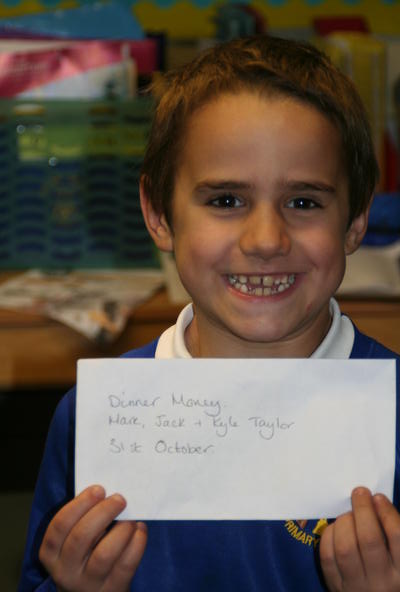 Dinner Money.
Mark, Jack + Kyle Taylor
31st October.
PRIMARY